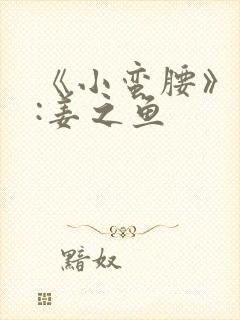 《小蛮腰》
:姜之鱼
黯奴